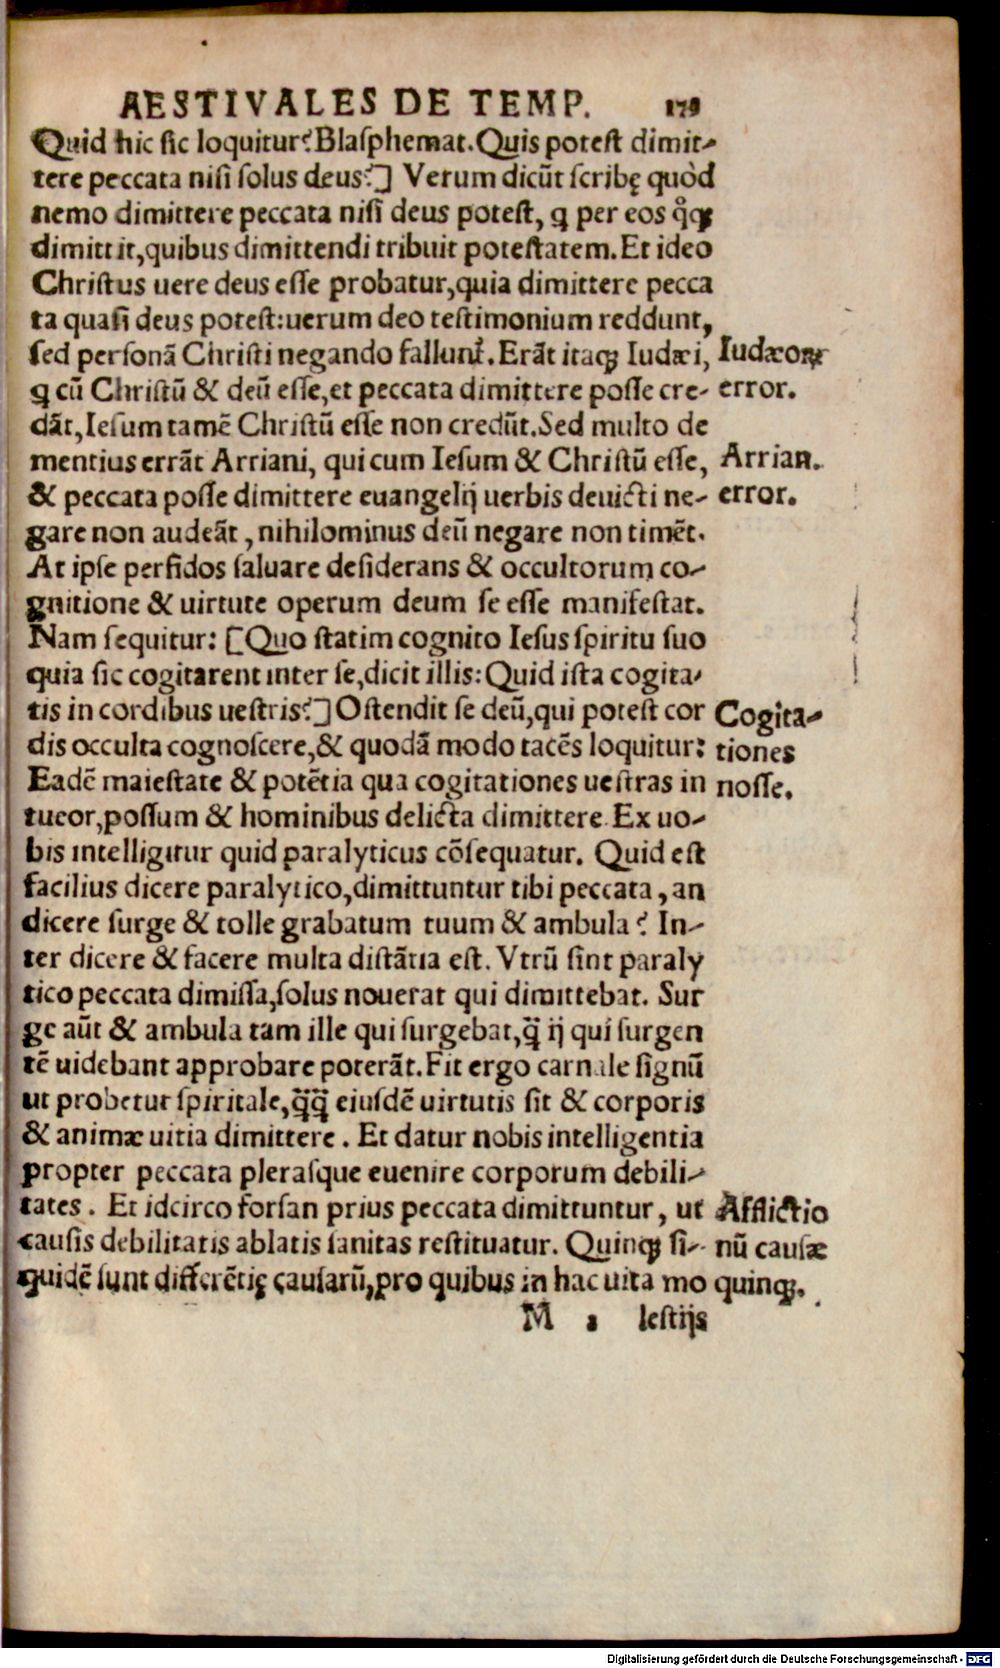 AESTIVALES DE TEMP. 178
Quid hic sic loquitur? Blasphemat. Quis potest dimit-
tere peccata nisi solus deus?] Verum dicūt scribę quòd
nemo dimittere peccata nisi deus potest, ꝗ per eos qͦꝗꝫ
dimittit, quibus dimittendi tribuit potestatem. Et ideo
Christus uere deus esse probatur, quia dimittere pecca
ta quasi deus potest: uerum deo testimonium reddunt,
sed personā Christi negando fallunt. Erāt itaqꝫ Iudæi,
ꝗ cū Christū & deū esse, et peccata dimittere posse cre-
dāt, Iesum tamē Christū esse non credūt. Sed multo de
mentius errāt Arriani, qui cum Iesum & Christū esse,
& peccata posse dimittere euangelij uerbis deuicti ne-
gare non audeāt, nihilominus deū negare non timēt.
At ipse perfidos saluare desiderans & occultorum co-
gnitione & uirtute operum deum se esse manifestat.
Nam sequitur: [Quo statim cognito Iesus spiritu suo
quia sic cogitarent inter se, dicit illis: Quid ista cogita-
tis in cordibus uestris?] Ostendit se deū, qui potest cor
dis occulta cognoscere, & quodā modo tacēs loquitur:
Eadē maiestate & potētia qua cogitationes uestras in
tueor, possum & hominibus delicta dimittere. Ex uo-
bis intelligitur quid paralyticus cōsequatur. Quid est
facilius dicere paralytico, dimittuntur tibi peccata, an
dicere surge & tolle grabatum tuum & ambula? In-
ter dicere & facere multa distātia est. Vtrū sint paraly
tico peccata dimissa, solus nouerat qui dimittebat. Sur
ge aūt & ambula tam ille qui surgebat, q̄̃ ij qui surgen
tē uidebant approbare poterāt. Fit ergo carnale signū
ut probetur spiritale, q̄̃q̄̃ eiusdē uirtutis sit & corporis
& animæ uitia dimittere. Et datur nobis intelligentia
propter peccata plerasque euenire corporum debili-
tates. Et idcirco forsan prius peccata dimittuntur, ut
causis debilitatis ablatis sanitas restituatur. Quinqꝫ si-
quidē sunt differētię causarū, pro quibus in hac uita mo
M 2 lestijs
Iudæoꝝ
error.
Arrian.
error.
Cogita-
tiones
nosse.
Afflictio
nū causæ
quinqꝫ.
Digitalisierung gefördert durch die Deutsche Forschungsgemeinschaft - DFG